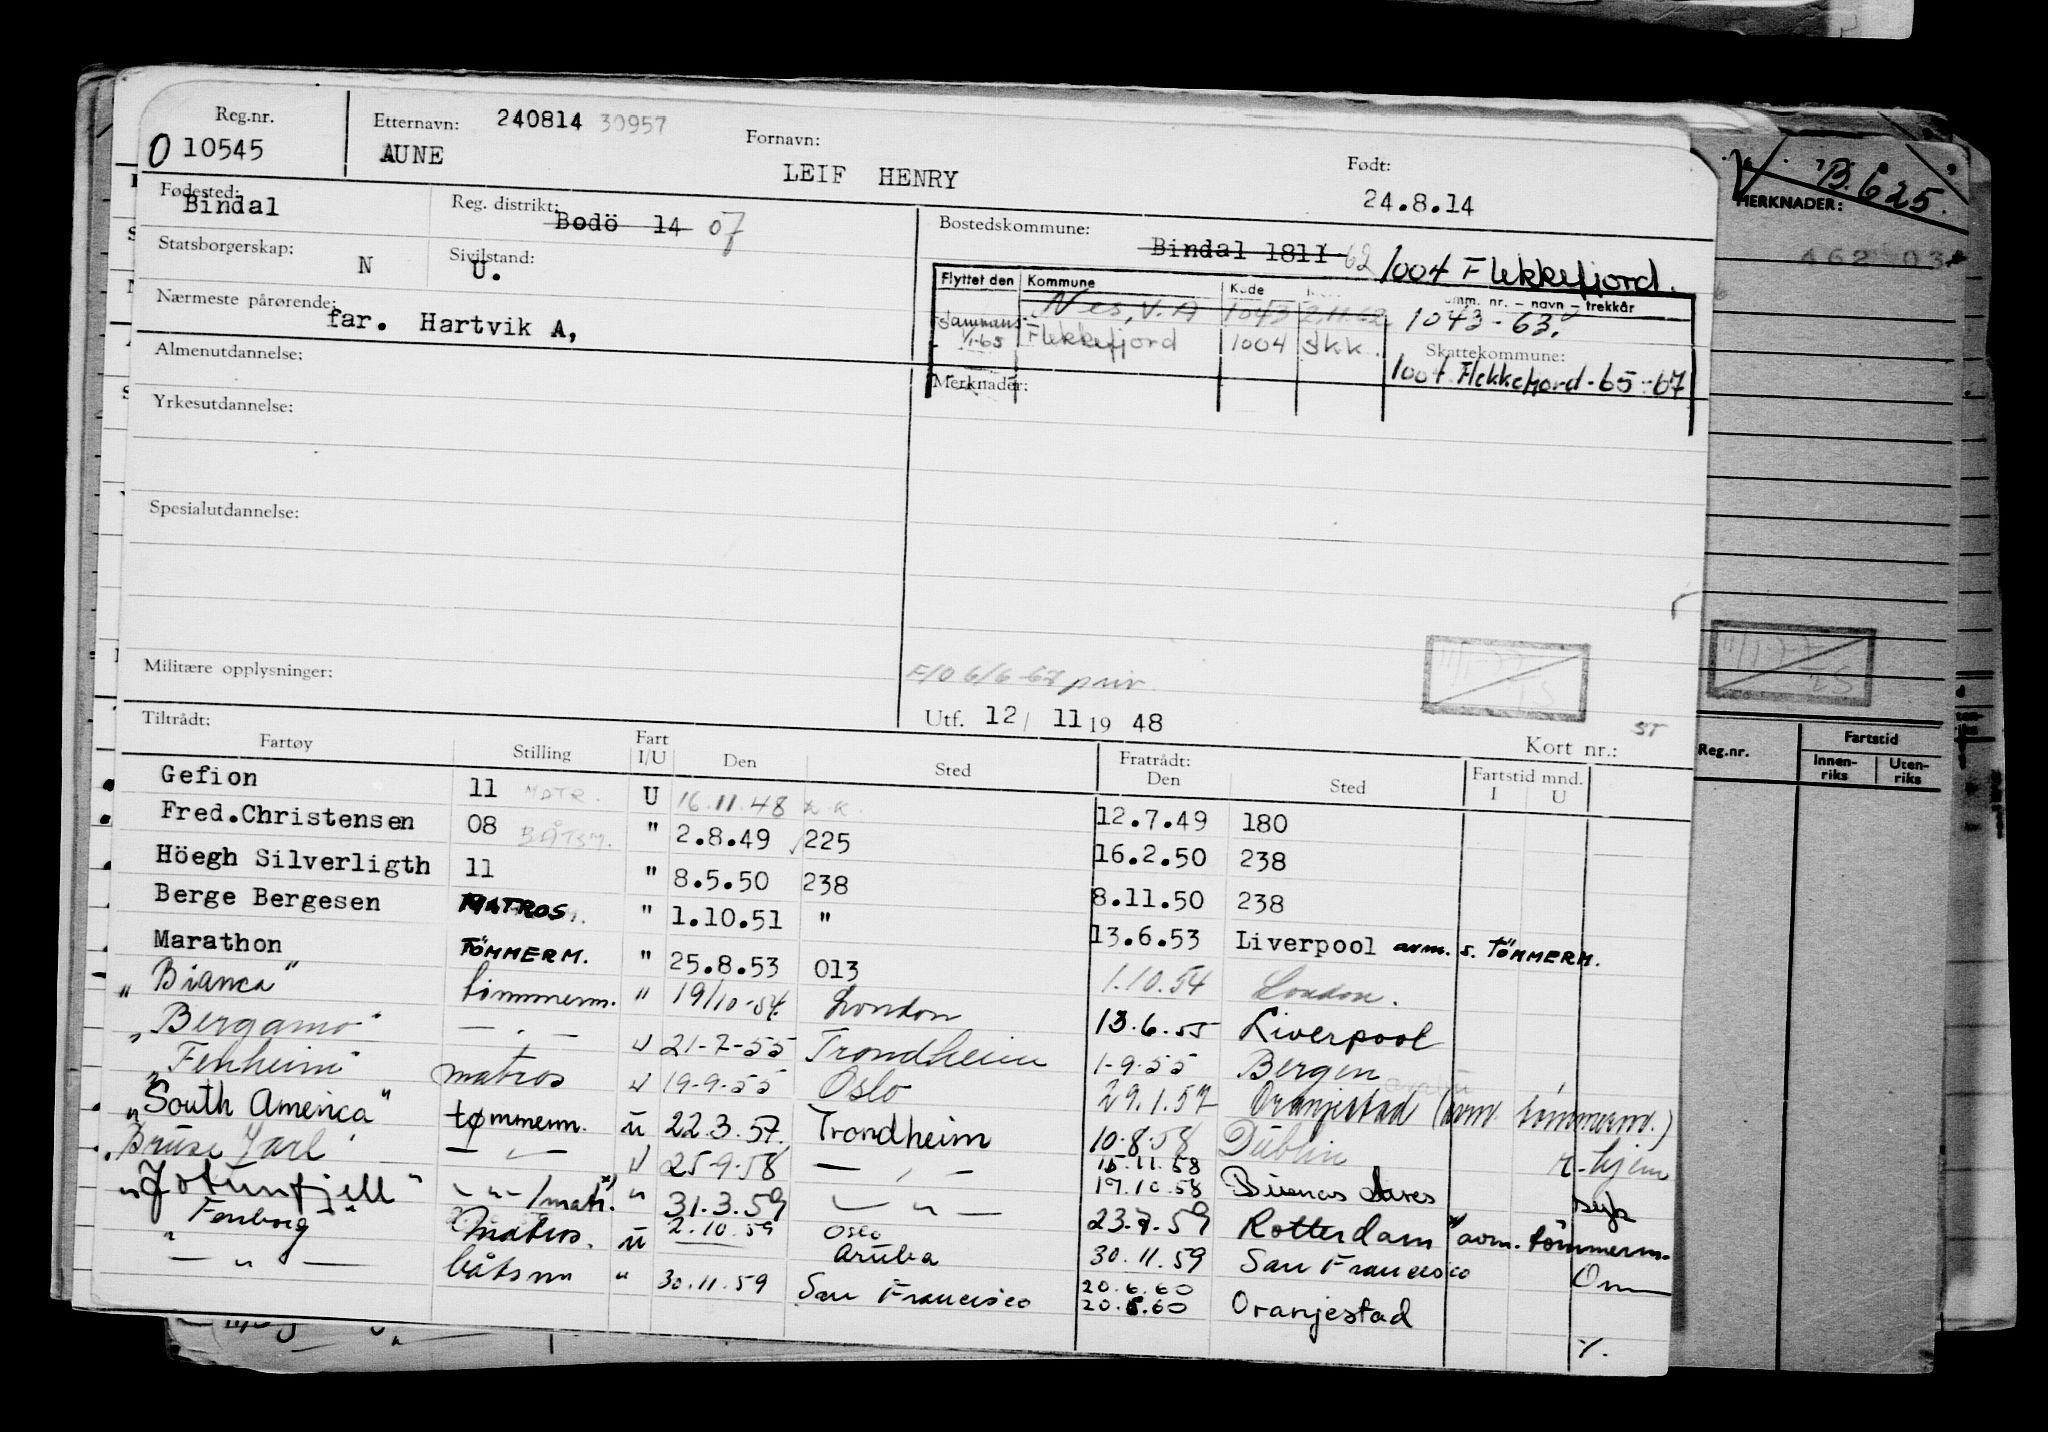 Reg.nr. Etternavn: 240814 30957 Fornavn: Født:
0 10545 AUNE LEIF HENRY 24.8.14
Fødested: Bindal Reg. distrikt: Bodö 14 07 Bostedskommune: Bindal 1811 62 1004 Flekkefjord.
Statsborgerskap: N Sivilstand: U.
Flyttet den Kommune Kode komm. nr. – navn – trekkår
Nes, V.A 1043 2.11.62 1043-63.
Nærmeste pårørende: far. Hartvik A,
Sammensl. 1/1-65 Flekkefjord 1004 skk. Skattekommune:
1004 Flekkefjord-65-67
Almenutdannelse: Merknader:
Yrkesutdannelse:
Spesialutdannelse:
Militære opplysninger: F/O 6/6-67 priv.
Utf. 12/ 11 19 48 Kort nr.: ST
Tiltrådt: Fratrådt:
Fartøy Stilling Fart I/U Den Sted Den Sted Fartstid mnd. I U
Gefion 11 MATR. U 16.11.48 12.7.49 180
Fred.Christensen 08 BÅTSM. " 2.8.49 225 16.2.50 238
Höegh Silverligth 11 " 8.5.50 238 8.11.50 238
Berge Bergesen MATROS. " 1.10.51 " 13.6.53 Liverpool avm. s. TÖMMERM.
Marathon TÖMMERM. " 25.8.53 013 1.10.54 London.
"Bianca" tömmerm. " 19/10-54 London 13.6.55 Liverpool
"Bergamo" — " — U 21-7-55 Trondheim 1-9-55 Bergen
"Fenheim" matros U 19-9-55 Oslo 29.1.57 Oranjestad (avm. tömmerm.)
"South America" tømmerm. u 22.3.57. Trondheim 10-8-58 Dublin r-hjem
"Bruse Jarl" — " — U 25-9-58 — " — 15.11.58
17.10.58 Buenos Aires syk
"Jotunfjell" — " — /matr. *) " 31.3.59 — " — 23.7.59 Rotterdam *) avm. tömmerm.
"Fenborg" matros. u 2.10.59 Oslo Aruba 30.11.59 San Francisco Om
— " — båtsm " 30.11.59 San Francisco 20.6.60
20.5.60 Oranjestad %.
V. B. 625.
MERKNADER:
Reg.nr. Fartstid
Innen-riks Uten-riks